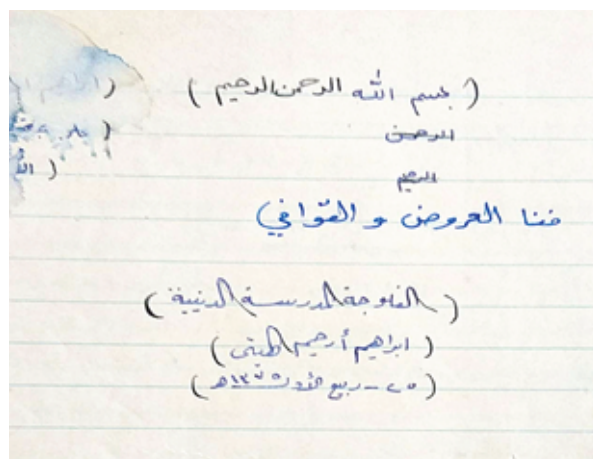 ( بسم الله الرحمن الرحيم )
الرحمن
الرحيم
فنا العروض و القوافي
( الفلوجة المدرسة الدينية )
( ابراهيم أرحيم الهيتي )
( ٢٥ - ربيع الأول